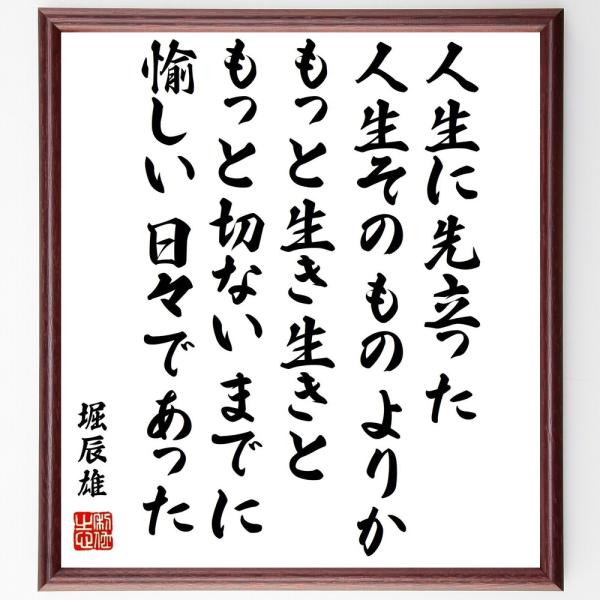 人生に先立った
人生そのものよりか
もっと生き生きと
もっと切ないまでに
愉しい日々であった
堀辰雄